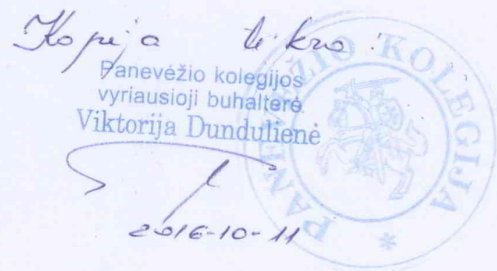 Kopija tikra
Panevėžio kolegijos
vyriausioji buhalterė
Viktorija Dundulienė
2016-10-11
PANEVĖŽIO KOLEGIJA